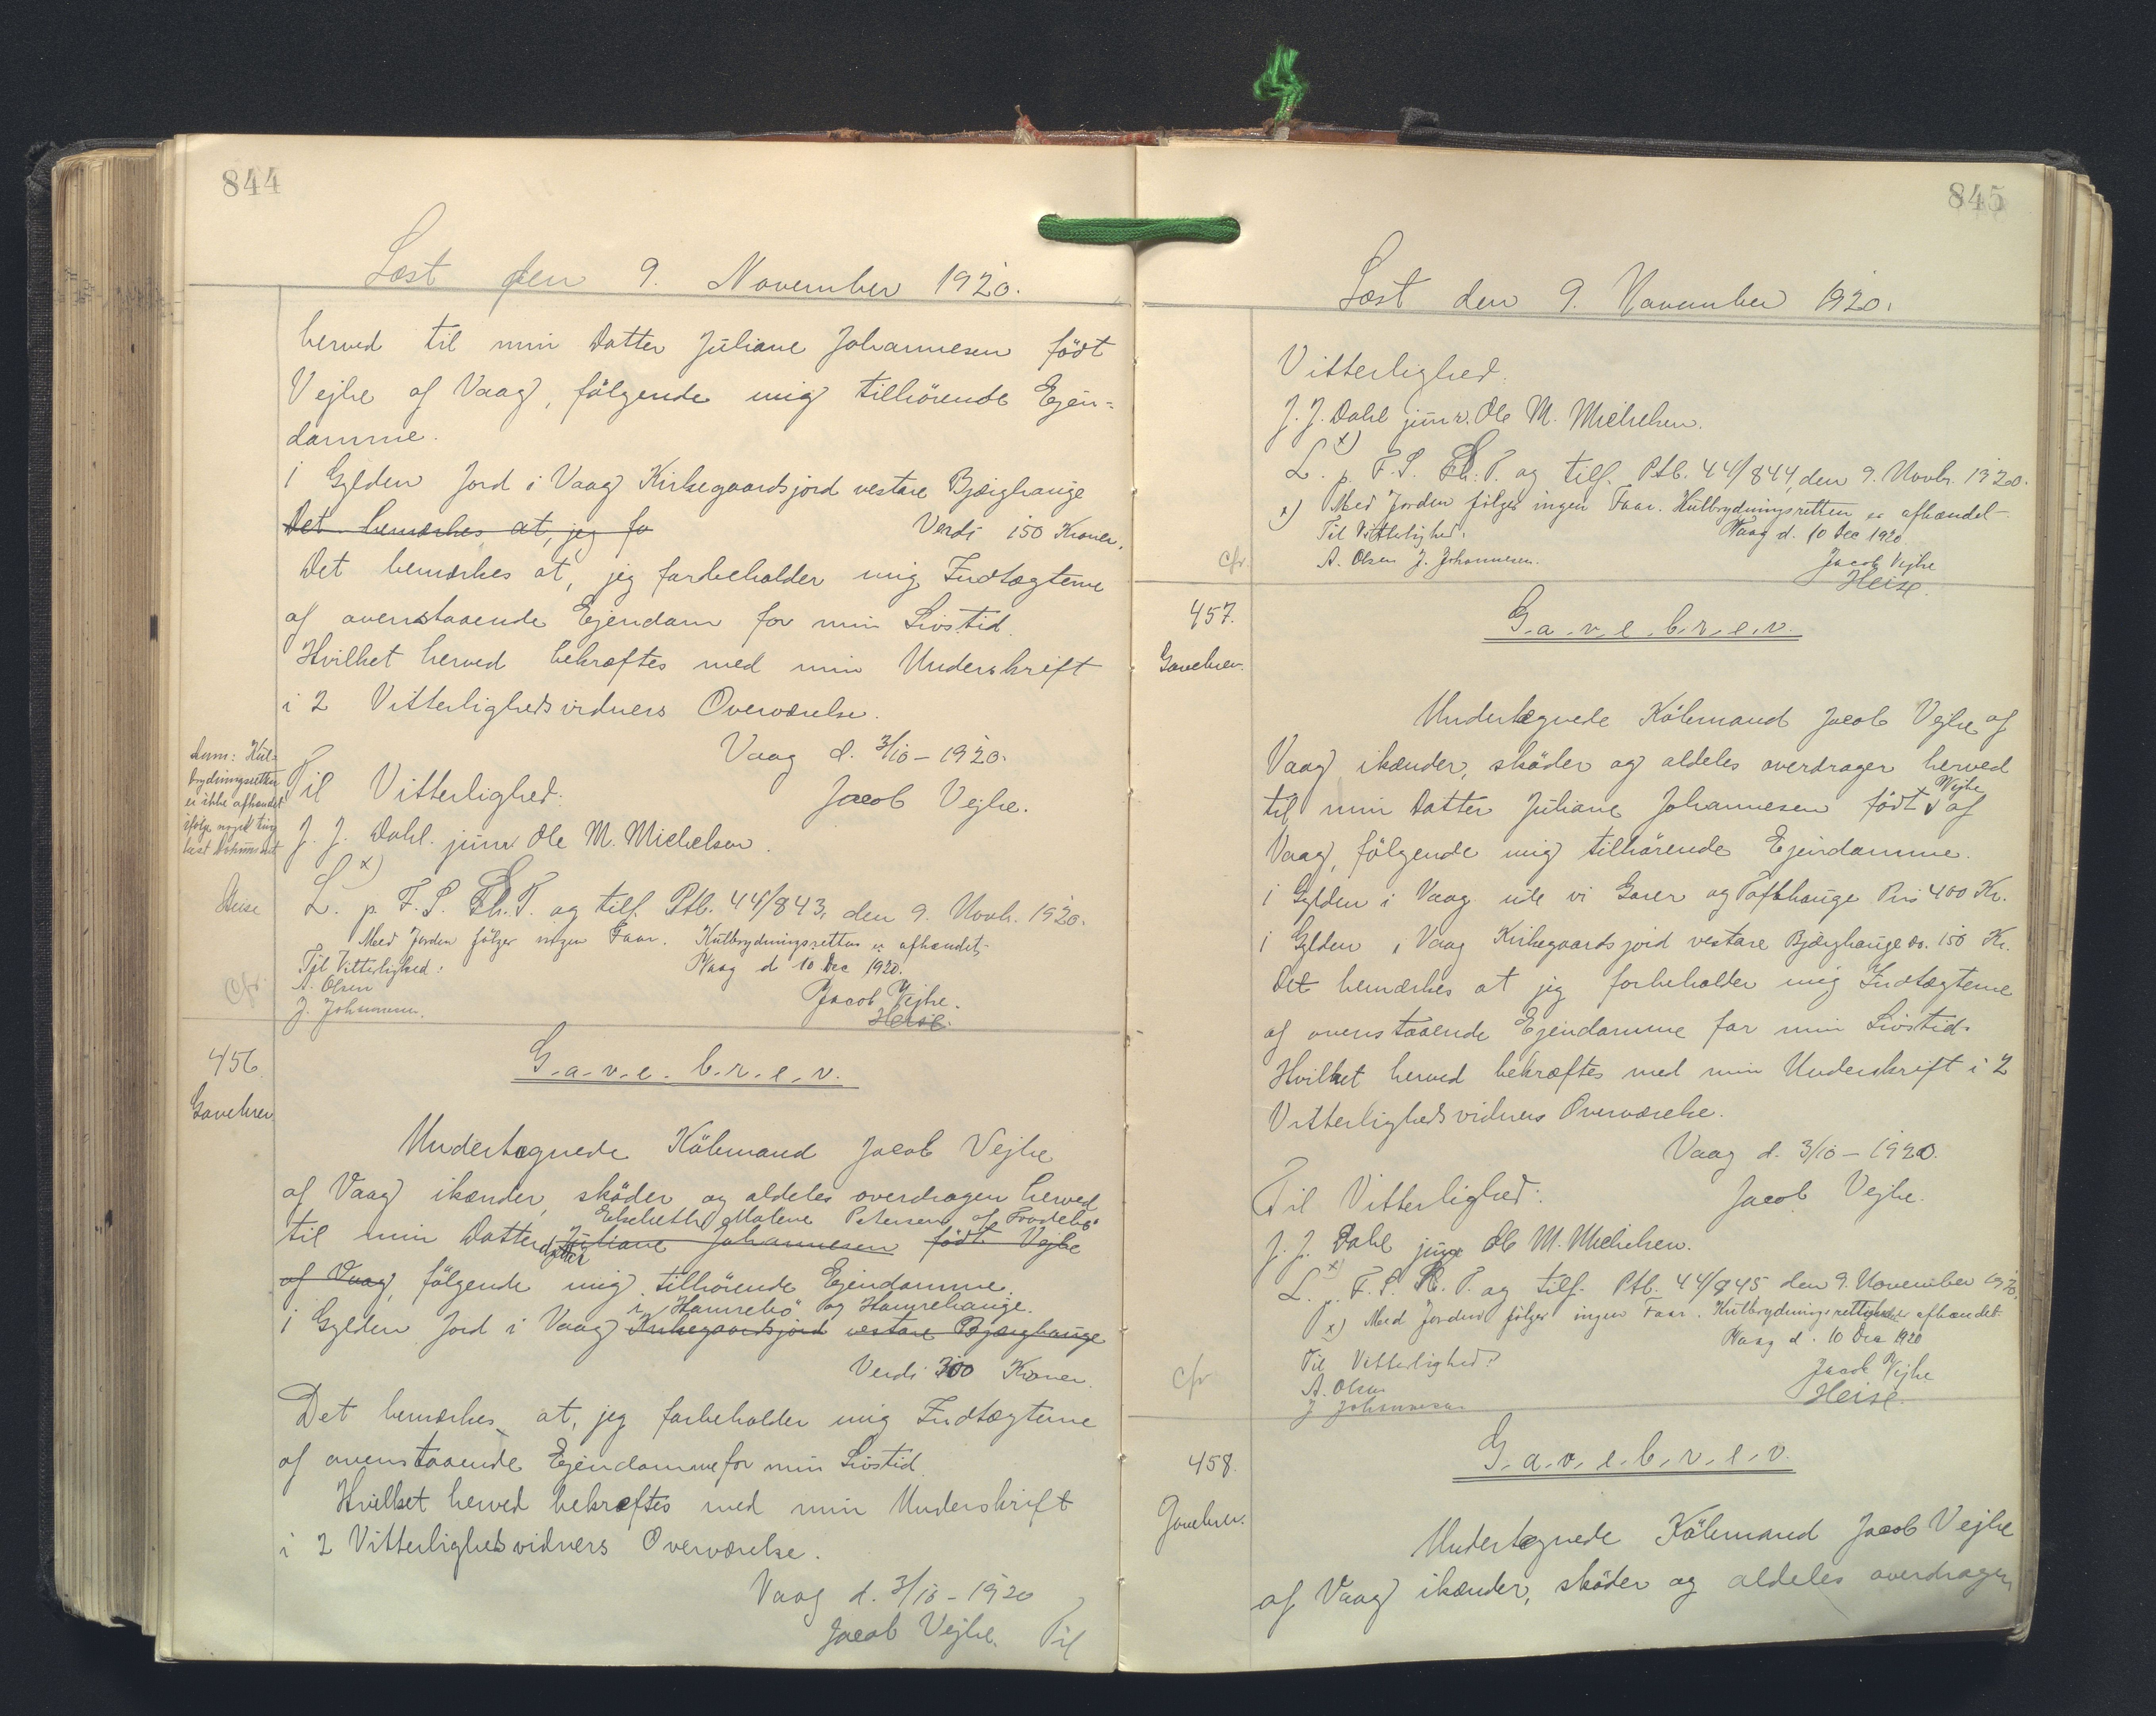 844
Læst den 9. November 1920.
herved til min Datter Juliane Johannesen födt
Vejhe af Vaag, fölgende mig tilhörende Ejen=
damme.
i Gylden Jord i Vaag Kirkegaardsjord vestare Bjærghauge
Det bemærkes at, jeg fo
Verdi 150 Kroner.
Det bemærkes at, jeg forbeholder mig Indtægterne
af ovenstaaende Ejendom for min Livstid.
Hvilket herved bekræftes med min Underskrift
i 2 Vitterlighedsvidners Overværelse.
Vaag d. 3/10 – 1920.
Til Vitterlighed:
Jacob Vejhe.
J. J. Dahl. junr Ole M. Michelsen.
Anm: Hut=
brydningsretten
er ikke afhændet
ifölge
læst
Heise
x)
L. p. F. S. Th. T. og tilf. Ptb. 44/843, den 9. Novb. 1920.
Med Jorden fölger ingen Faar. Hutbrydningsretten er afhændet
Vaag d 10 Dec 1920.
Til Vitterlighed:
A. Olsen
J. Johannesen.
Jacob Vejhe.
Heise.
cfr.
456.
Gavebrev
G.a.v.e.b.r.e.v.
Undertegnede Köbmand Jacob Vejhe
af Vaag ikænder, sköder og aldeles overdragen herved
Elsebeth Malene Petersen af Frodebö
til min Datterdatter Juliane Johannesen födt Vejhe
af Vaag, fölgende mig tilhörende Ejendamme.
i Hamrebö og Hamrehauge.
i Gylden Jord i Vaag Kirkegaardsjord vestare Bjærghauge
Verdi 300 Kroner.
Det bemærkes at, jeg forbeholder mig Indtægterne
af ovenstaaende Ejendamme for min Livstid.
Hvilket herved bekræftes med min Underskrift
i 2 Vitterlighedsvidners Overværelse.
Vaag d. 3/10 – 1920
Jacob Vejhe. Til
845
Læst den 9. November 1920.
Vitterlighed.
J. J. Dahl junr. Ole M. Michelsen.
x)
L. p. F. S. Th. T. og tilf. Ptb. 44/844, den 9. Novb. 1920.
x) Med Jorden fölger ingen Faar. Hutbrydningsretten er afhændet
Til Vitterlighed.
Vaag d. 10 Dec 1920.
A. Olsen J. Johannesen.
Jacob Vejhe
Heise.
cfr.
457.
Gavebrev.
G.a.v.e.b.r.e.v.
Undertegnede Köbmand Jacob Vejhe af
Vaag ikænder, sköder og aldeles overdrager herved
Vejhe
til min Datter Juliane Johannesen födt v af
Vaag, fölgende mig tilhörende Ejendamme.
i Gylden i Vaag ude vi Garer og Tofthauge Pris 400 Kr.
i Gylden i Vaag Kirkegaardsjord vestare Bjærghauge do. 150 Kr.
Det bemærkes at jeg forbeholder mig Indtægterne
af ovenstaaende Ejendamme for min Livstid.
Hvilket herved bekræftes med min Underskrift i 2
Vitterlighedsvidners Overværelse.
Vaag d. 3/10 – 1920.
Til Vitterlighed:
Jacob Vejhe.
J. J. Dahl junr Ole M. Michelsen.
x)
L. p. F. S. Th. T. og tilf. Ptb. 44/845 den 9. November 1920.
x) Med Jorden fölger ingen Faar. Hutbrydningsretten er afhændet.
Vaag d. 10 Dec 1920
Til Vitterlighed:
A. Olsen
J Johannesen
Jacob Vejhe
Heise.
cfr
458.
Gavebrev.
G.a.v.e.b.r.e.v.
Undertegnede Köbmand Jacob Vejhe
af Vaag ikænder, sköder og aldeles overdragen